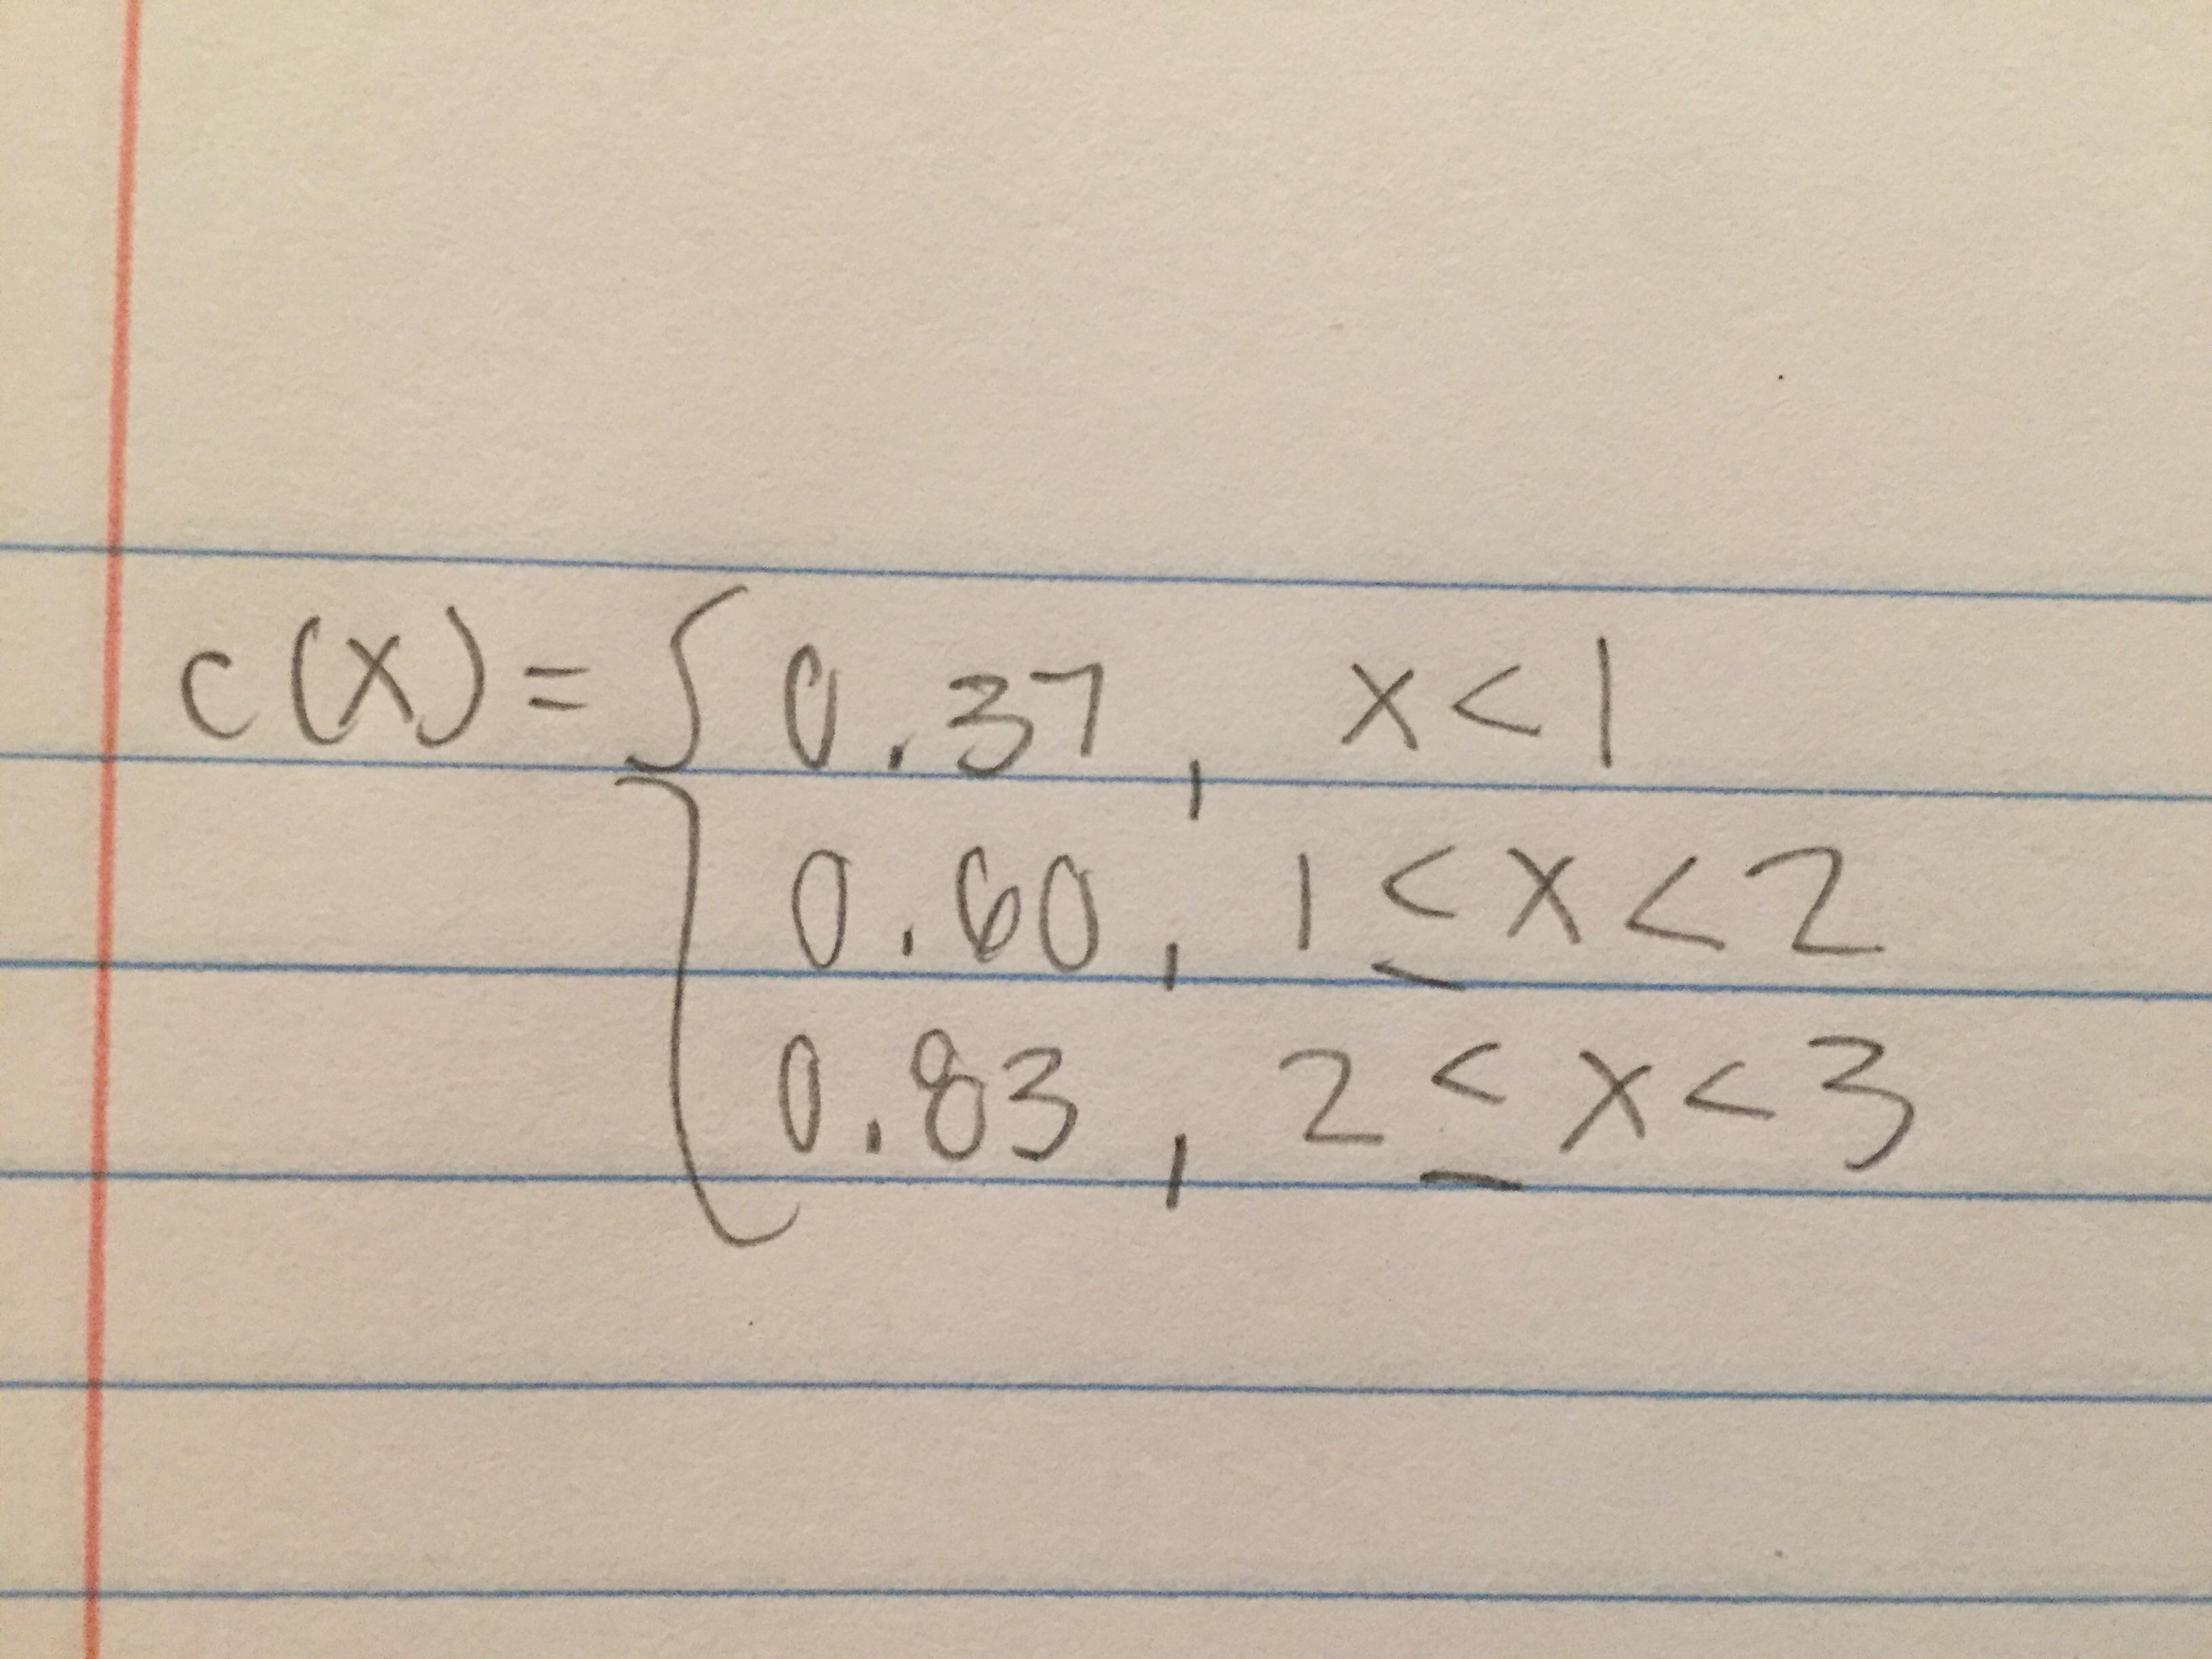 c(x)= { 0.37, x<1
0.60, 1≤x<2
0.83, 2≤x<3